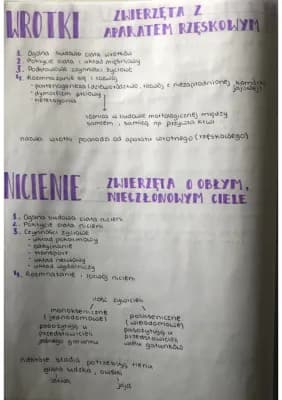 WROTKI ZWIERZĘTA Z APARATEM RZĘSKOWYM
1. Ogólna budowa ciała wrotków
2. Pokrycie ciała i układ mięśniowy
3. Podstawowe czynności życiowe
4. Rozmnażanie się i rozwój
- partenogeneza (dzieworództwo, rozwój z niezapłodnionej komórki jajowej)
- dymorfizm płciowy
- heterogonia
różnica w budowie morfologicznej między
samcem, a samicą np. przyssa
nazwa wrotki pochodzi od aparatu wrotnego (rzęskowego)
NICIENIE ZWIERZĘTA O OBŁYM, NIECZŁONOWYM CIELE
1. Ogólna budowa ciała nicieni
2. Pokrycie ciała nicieni
3. Czynności życiowe
- układ pokarmowy
- oddychanie
- transport
- układ nerwowy
- układ wydalniczy
4. Rozmnażanie i rozwój nicieni
ilość żywicieli
monokseniczne polikseniczne
(jednodomowe) (wielodomowe)
pasożytują u pasożytują u
przedstawicieli przedstawicieli
jednego gatunku wielu gatunków
niektóre stadia potrzebują tlenu
glista ludzka, owsiki
jaja